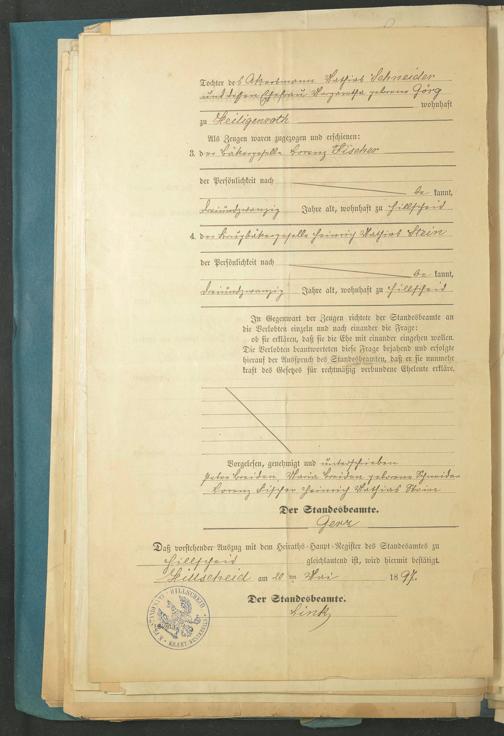 Tochter des Akersmann Mathias Schneider
und dessen Ehefrau Margaretha geborene Görg
wohnhaft
zu Heiligenroth
Als Zeugen waren zugezogen und erschienen:
3. der Bäkergeselle Lorenz Fischer
der Persönlichkeit nach
be kannt,
dreiundzwanzig Jahre alt, wohnhaft zu Hillscheid
4. der Krugbäkergeselle Heinrich Mathias Stein
der Persönlichkeit nach
be kannt,
dreiundzwanzig Jahre alt, wohnhaft zu Hillscheid
In Gegenwart der Zeugen richtete der Standesbeamte an
die Verlobten einzeln und nach einander die Frage:
ob sie erklären, daß sie die Ehe mit einander eingehen wollen.
Die Verlobten beantworteten diese Frage bejahend und erfolgte
hierauf der Ausspruch des Standesbeamten, daß er sie nunmehr
kraft des Gesetzes für rechtmäßig verbundene Eheleute erkläre.
Vorgelesen, genehmigt und unterschrieben
Peter Breiden Maria Breiden geborene Schneider
Lorenz Fischer Heinrich Mathias Stein
Der Standesbeamte.
Gerz
Daß vorstehender Auszug mit dem Heiraths-Haupt-Register des Standesamtes zu
Hillscheid gleichlautend ist, wird hiermit bestätigt.
Hillscheid am 20 ten Mai 1897.
Der Standesbeamte.
Link
HILLSCHEID